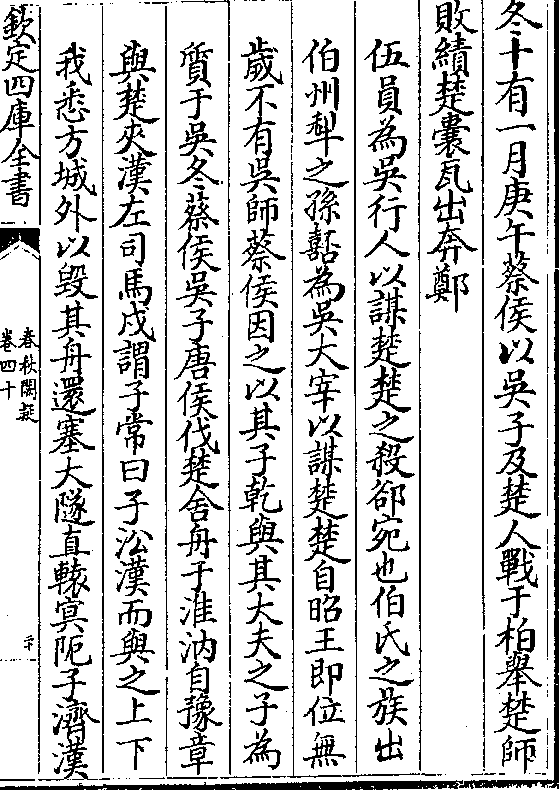 冬十有一月庚午蔡侯以吳子及楚人戰于柏舉楚師
敗績楚囊瓦出奔鄭
伍員為吳行人以謀楚楚之殺郤宛也伯氏之族出
伯州犁之孫嚭為吳大宰以謀楚楚自昭王即位無
歲不有吳師蔡侯因之以其子乾與其大夫之子為
質于吳冬蔡侯吳子唐侯伐楚舍舟于淮汭自豫章
與楚夾漢左司馬戌謂子常曰子沿漢而與之上下
我悉方城外以毀其舟還塞大隧直轅冥阨子濟漢
欽定四庫全書
春秋闕疑
卷四十
二十